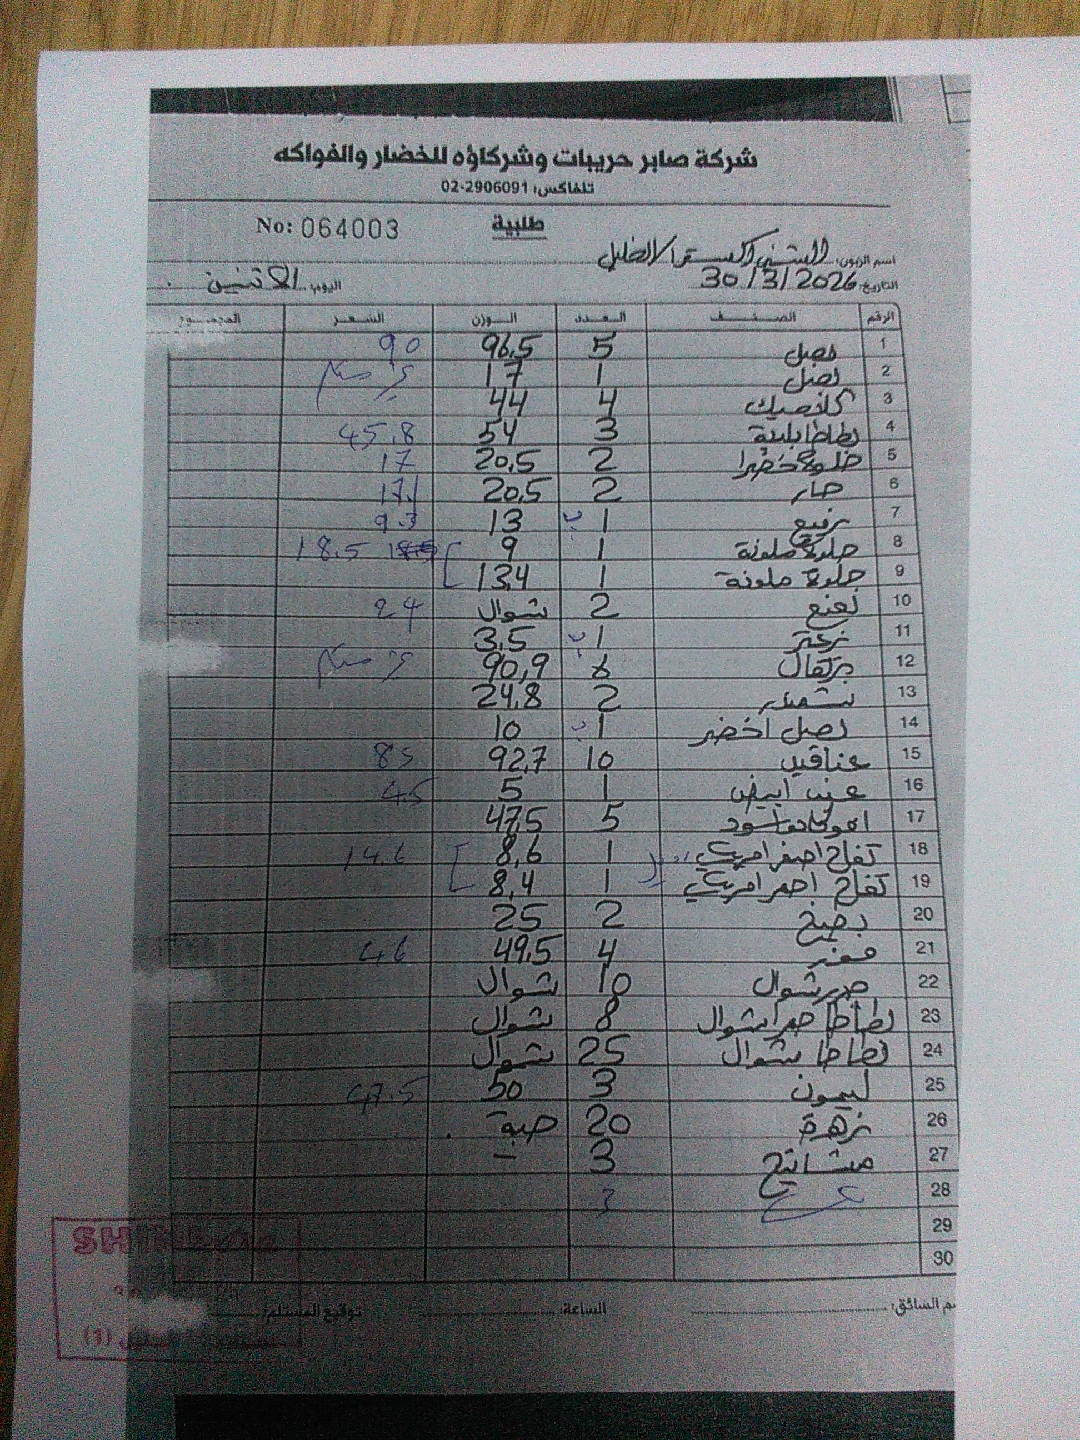 شركة صابر حريبات وشركاؤه للخضار والفواكه
تلفاكس: 02-2906091
No: 064003 طلبية
اسم الزبون: الخليل
التاريخ: 30/3/2026 اليوم: الاثنين
الرقم الصنف العدد الوزن السعر المجموع
1 بصل 5 96,5 90
2 بصل 1 17
3 4 44
4 بطاطا 3 54 45,8
5 حلوة خضرا 2 20,5 17
6 حار 2 20,5 17,1
7 رفيع 1 ب 13 9.3
8 حلوة ملونة 1 9 18.5
9 حلوة ملونة 1 13,4
10 نعنع 2 شوال 24
11 زعتر 1 ب 3,5
12 برتقال 90,9
13 2 24,8
14 بصل اخضر 1 ب 10
15 عناقيد 10 92,7 85
16 عنب ابيض 1 5 4.5
17 5 47,5
18 تفاح اصفر امريكي 1 8,6 14.6
19 تفاح احمر امريكي 1 8,4
20 2 25
21 4 49,5 46
22 شوال 10 شوال
23 بطاطا حمرا شوال 8 شوال
24 بطاطا شوال 25 شوال
25 ليمون 3 50 47.5
26 زهرة 20 حبة
27 3 -
28 3
29
30
السائق: الساعة: توقيع المستلم:
(1)